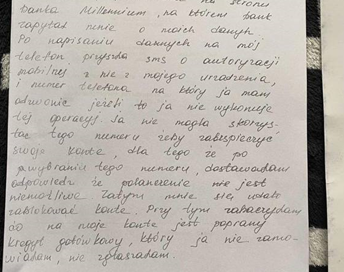 na stronu
banka Millennium, na którem bank
zapytał mnie o moich danych
Po napisaniu dannych na mój
telefon przyszła sms o autoryzacji
mobilnej z nie z mojego urządzenia,
i numer telefona na który ja mam
adzwonic jeżeli to ja nie wykonuję
tej operacyj. Ja nie mogła skorzys-
tac tego numeru żeby zabezpieczyc
swoje konte, dla tego że po
wybraniu tego numeru, dostawałam
odpowiedź że połączenie nie jest
niemożliwe Zatym mnie się udało
zablokować konte. Przy tym zobaczyłam
co na moje konte jest popramy
kredyt gotówkowy, który ja nie zamo-
wiałam, nie zgłaszałam.